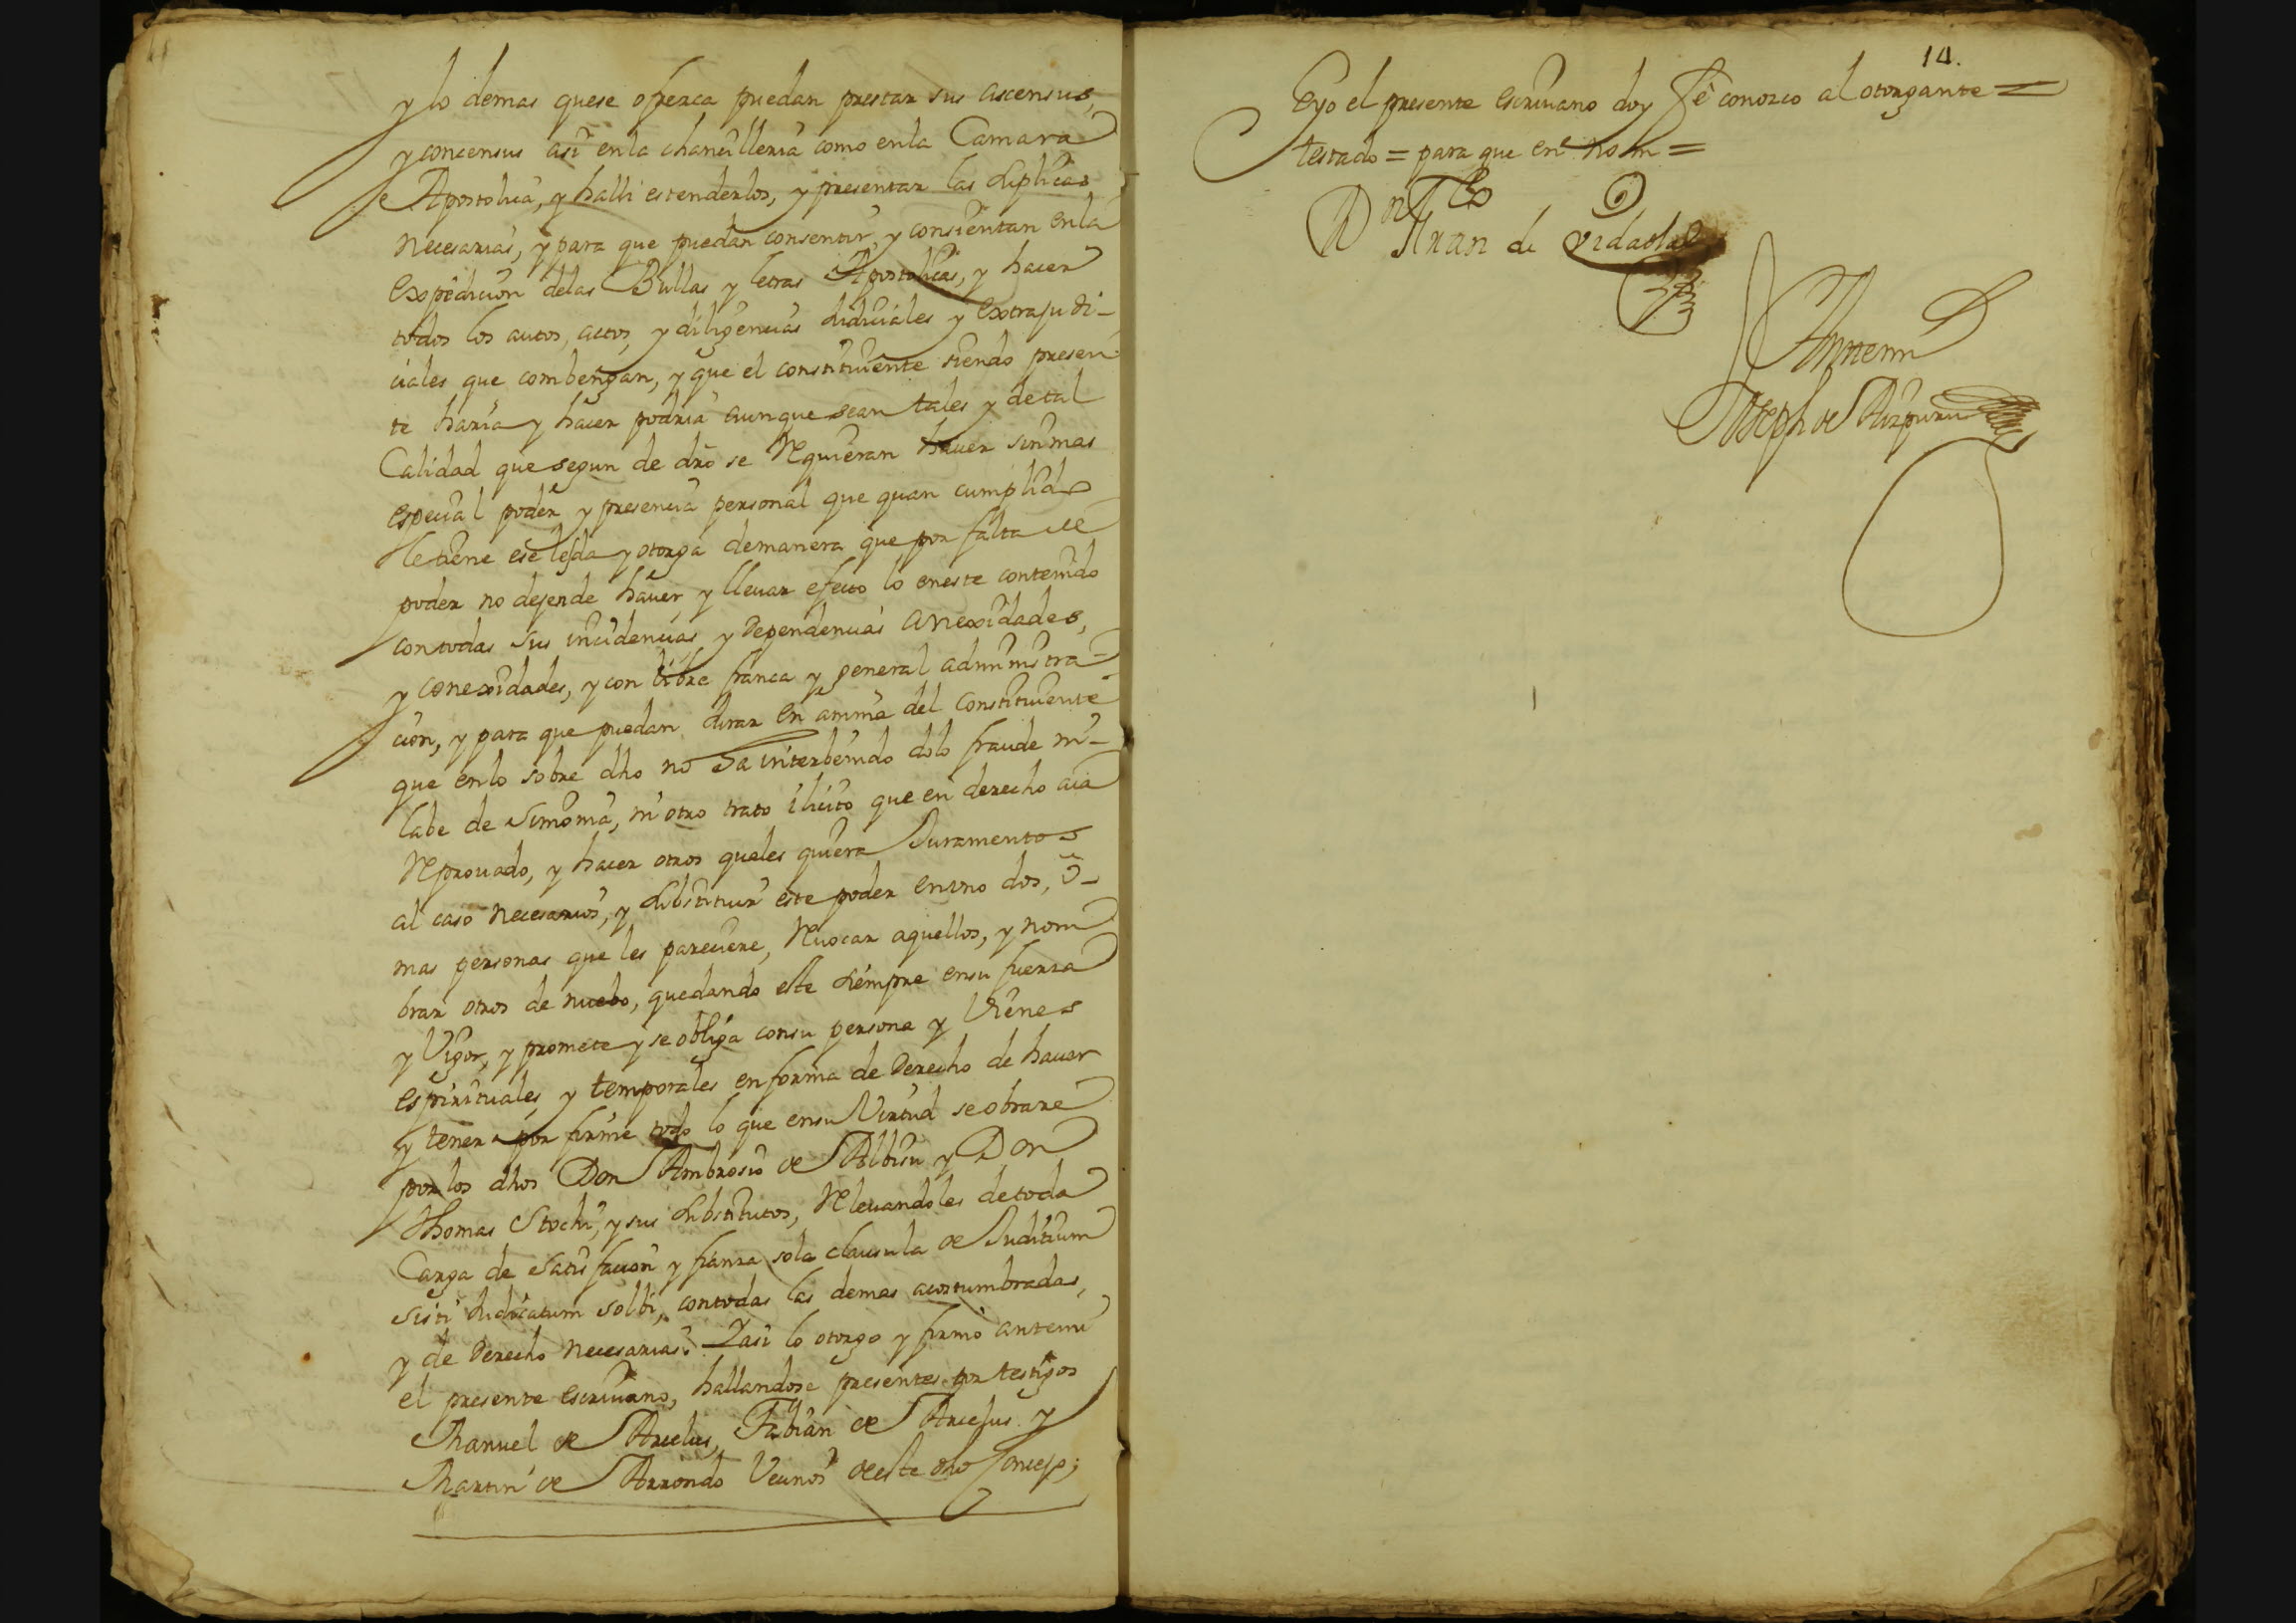 y lo demas quese ofrezca puedan prestar sus ascensus,
y concensus asi enla chancilleria como enla Camara
Apostolica, y halli estenderlos, y presentar las suplicas
necesarias, y para que puedan consentir, y consientan enla
Expedicion delas Bullas y letras Apostolicas, y hacer
todos los autos, actos, y diligencias Judiciales y Extrajudi-
ciales que combengan, y que el constituiente siendo presen-
te haria y hacer podria aunque sean tales y de tal
Calidad que segun de dro se Requieran hauer sin mas
especial poder y presencia personal que quan cumplido
le tiene ese les da y otorga demanera que por falta de
poder no dejende hauer y lleuar efecto lo eneste contenido
contodas sus incidencias y dependencias anexidades,
y conexidades, y con libre franca y general administra-
cion, y para que puedan Jurar en anima del Constituiente
que enlo sobre dho no ha interbenido dolo fraude ni-
labe de Simonia, ni otro trato ilicito que en derecho aia
Reprouado, y hacer otros quales quiera Juramentos
al caso necesarios, y substituir este poder en vno dos, ō-
mas personas que les pareciere, Reuocar aquellos, y nom
brar otros de nuebo, quedando este siempre ensu fuerza
y Vigor, y promete y se obliga consu persona y Vienes
espirituales y temporales en forma de derecho de hauer
y tener por firme todo lo que ensu Virtud se obrare
por los dhos Don Ambrosio de Albisu y Don
Thomas Stochi, y sus substitutos, Releuandoles de toda
Carga de satisfacion y fianza sola clausula de Juditium
sisti Judicatum solbi, contodas las demas acostumbradas,
y de derecho necesarias. Y asi lo otorgo y firmò antemi
el presente escriuano, hallandose presentes por testigos
Manuel de Arcelus, Fabian de Arcelus y
Martin de Arrondo Vecinos de este dho Concejo;
14.
Eyo el presente escriuano doy Fè conozco al otorgante =
testado = para que en nom =
Dn
Juan de Vidaola
Antemi
Joseph de Aizpuru